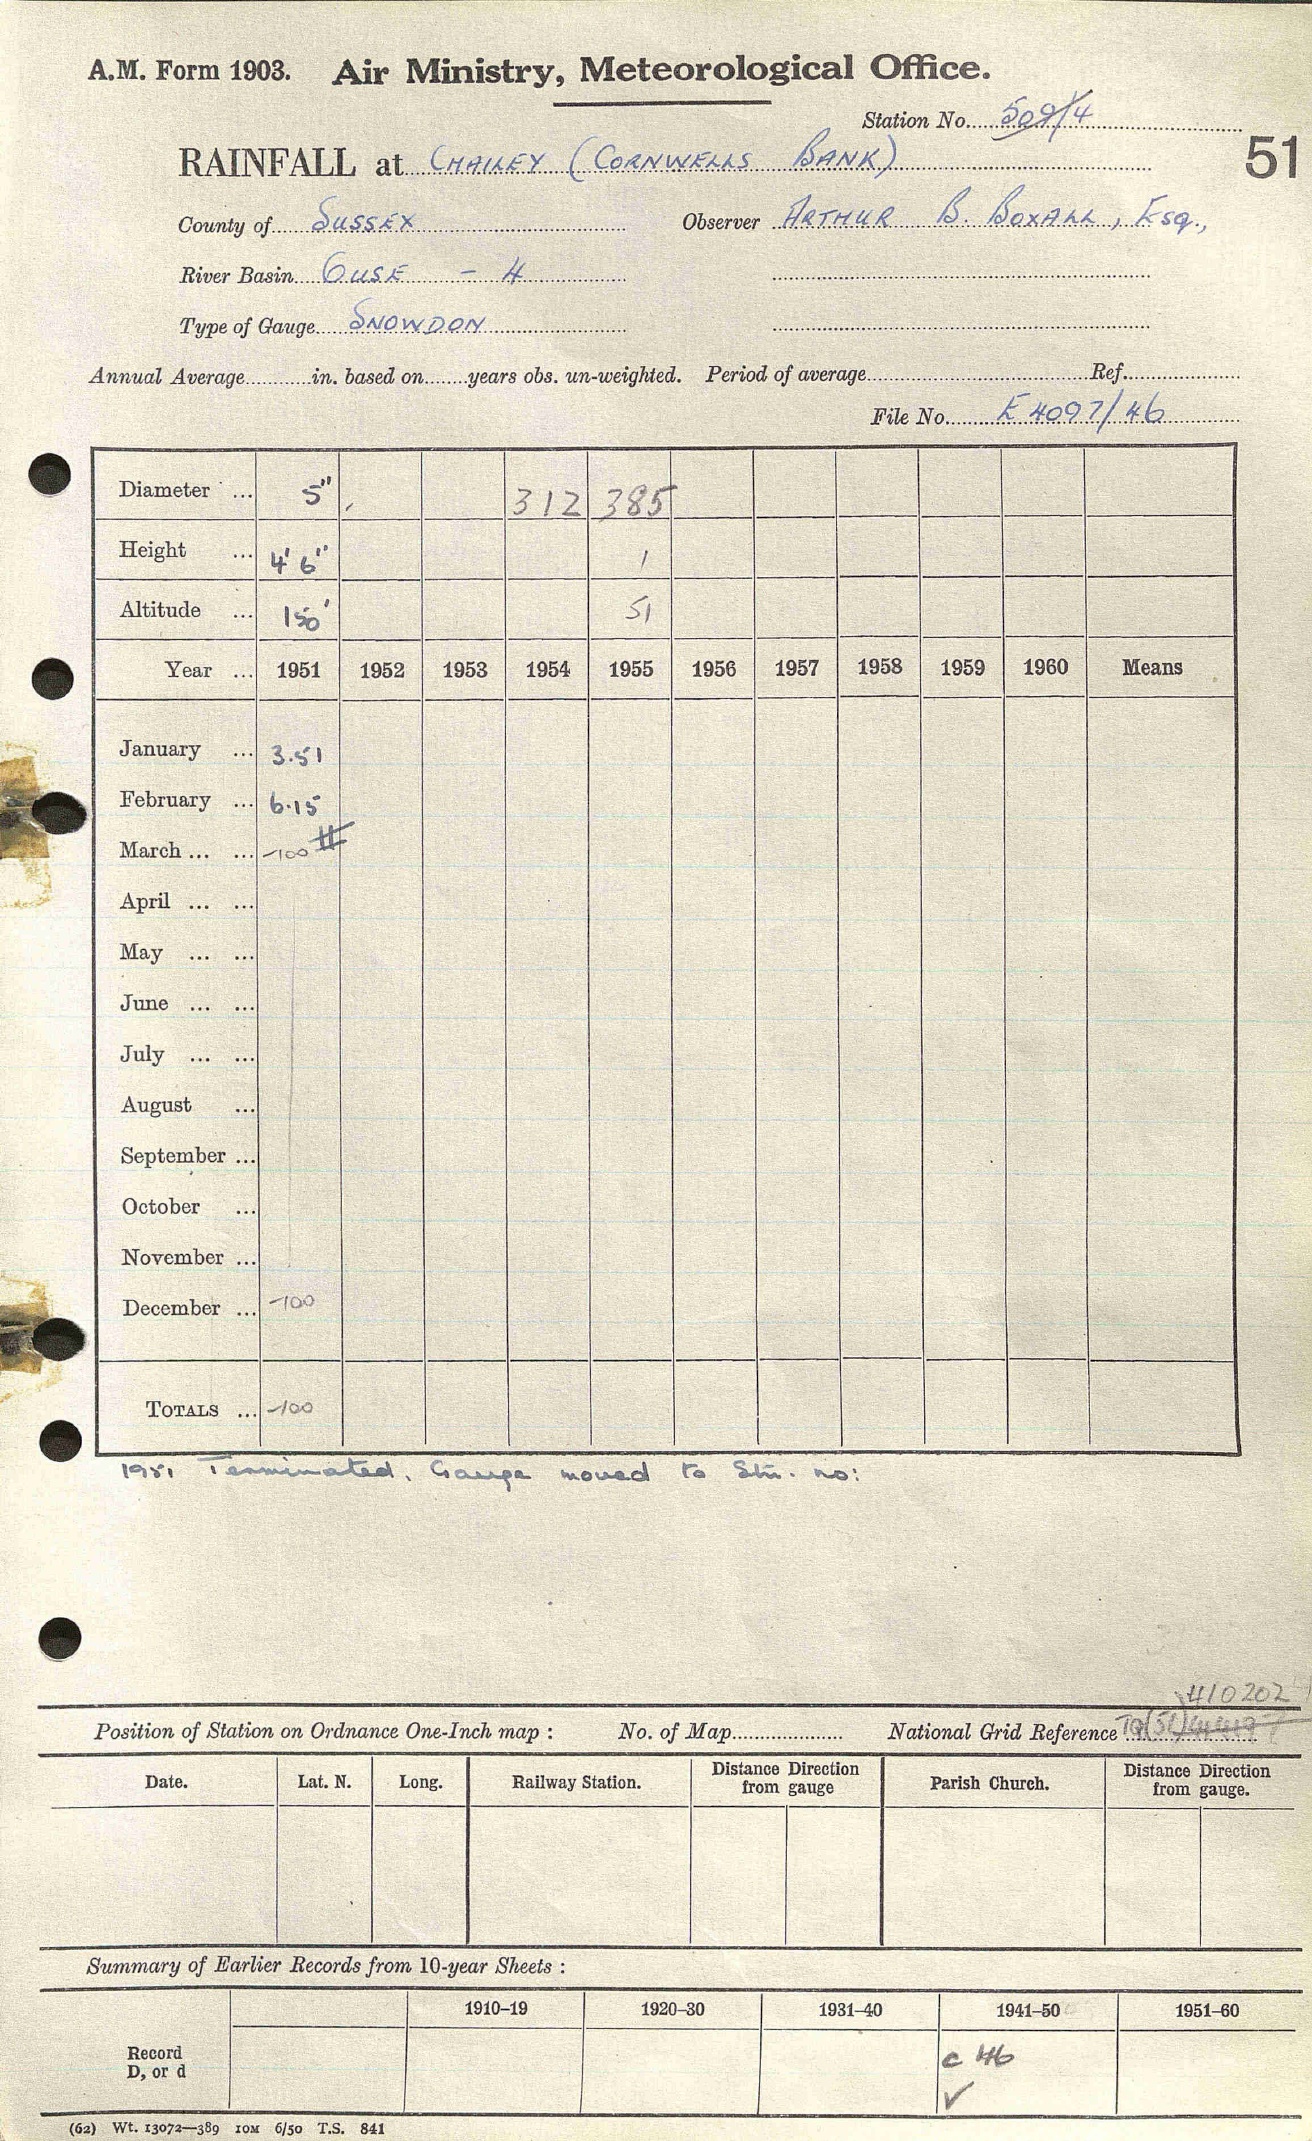 A.M. Form 1903. Air Ministry, Meteorological Office.
Station No. 509/4
51
RAINFALL at CHAILEY (CORNWELLS BANK)
County of SUSSEX Observer ARTHUR B. BOXALL, Esq.,
River Basin OUSE - 4
Type of Gauge SNOWDON
Annual Average in. based on years obs. un-weighted. Period of average Ref.
File No. E 4097/46
Diameter ... 5" 312 385
Height ... 4' 6" 1
Altitude ... 150' 51
Year ... 1951 1952 1953 1954 1955 1956 1957 1958 1959 1960 Means
January ... 3.51
February ... 6.15
March ... ... -100 #
April ... ...
May ... ...
June ... ...
July ... ...
August ...
September ...
October ...
November ...
December ... -100
TOTALS ... -100
1951 Terminated. Gauge moved to Stn. no:
410202
Position of Station on Ordnance One-Inch map : No. of Map National Grid Reference TQ(51)
Date. Lat. N. Long. Railway Station. Distance Direction from gauge Parish Church. Distance Direction from gauge.
Summary of Earlier Records from 10-year Sheets :
1910–19 1920–30 1931–40 1941–50 1951–60
Record D, or d c 46
✓
(62) Wt. 13072—389 10M 6/50 T.S. 841